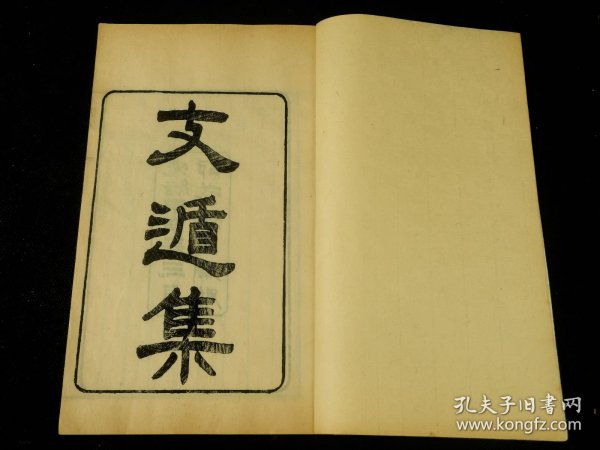 支遁集
孔夫子旧書网
www.kongfz.com